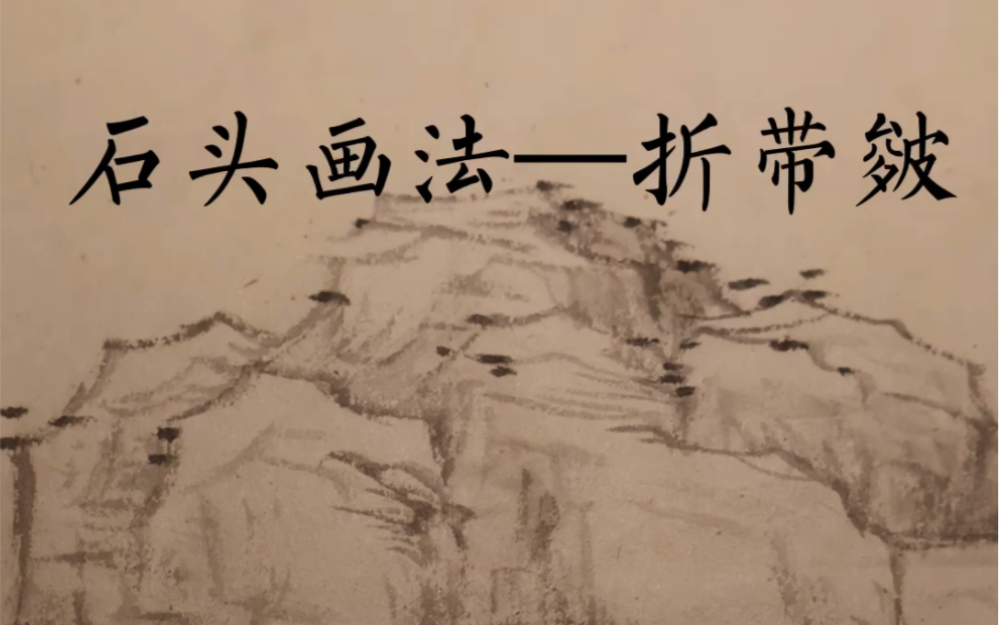 石头画法—折带皴